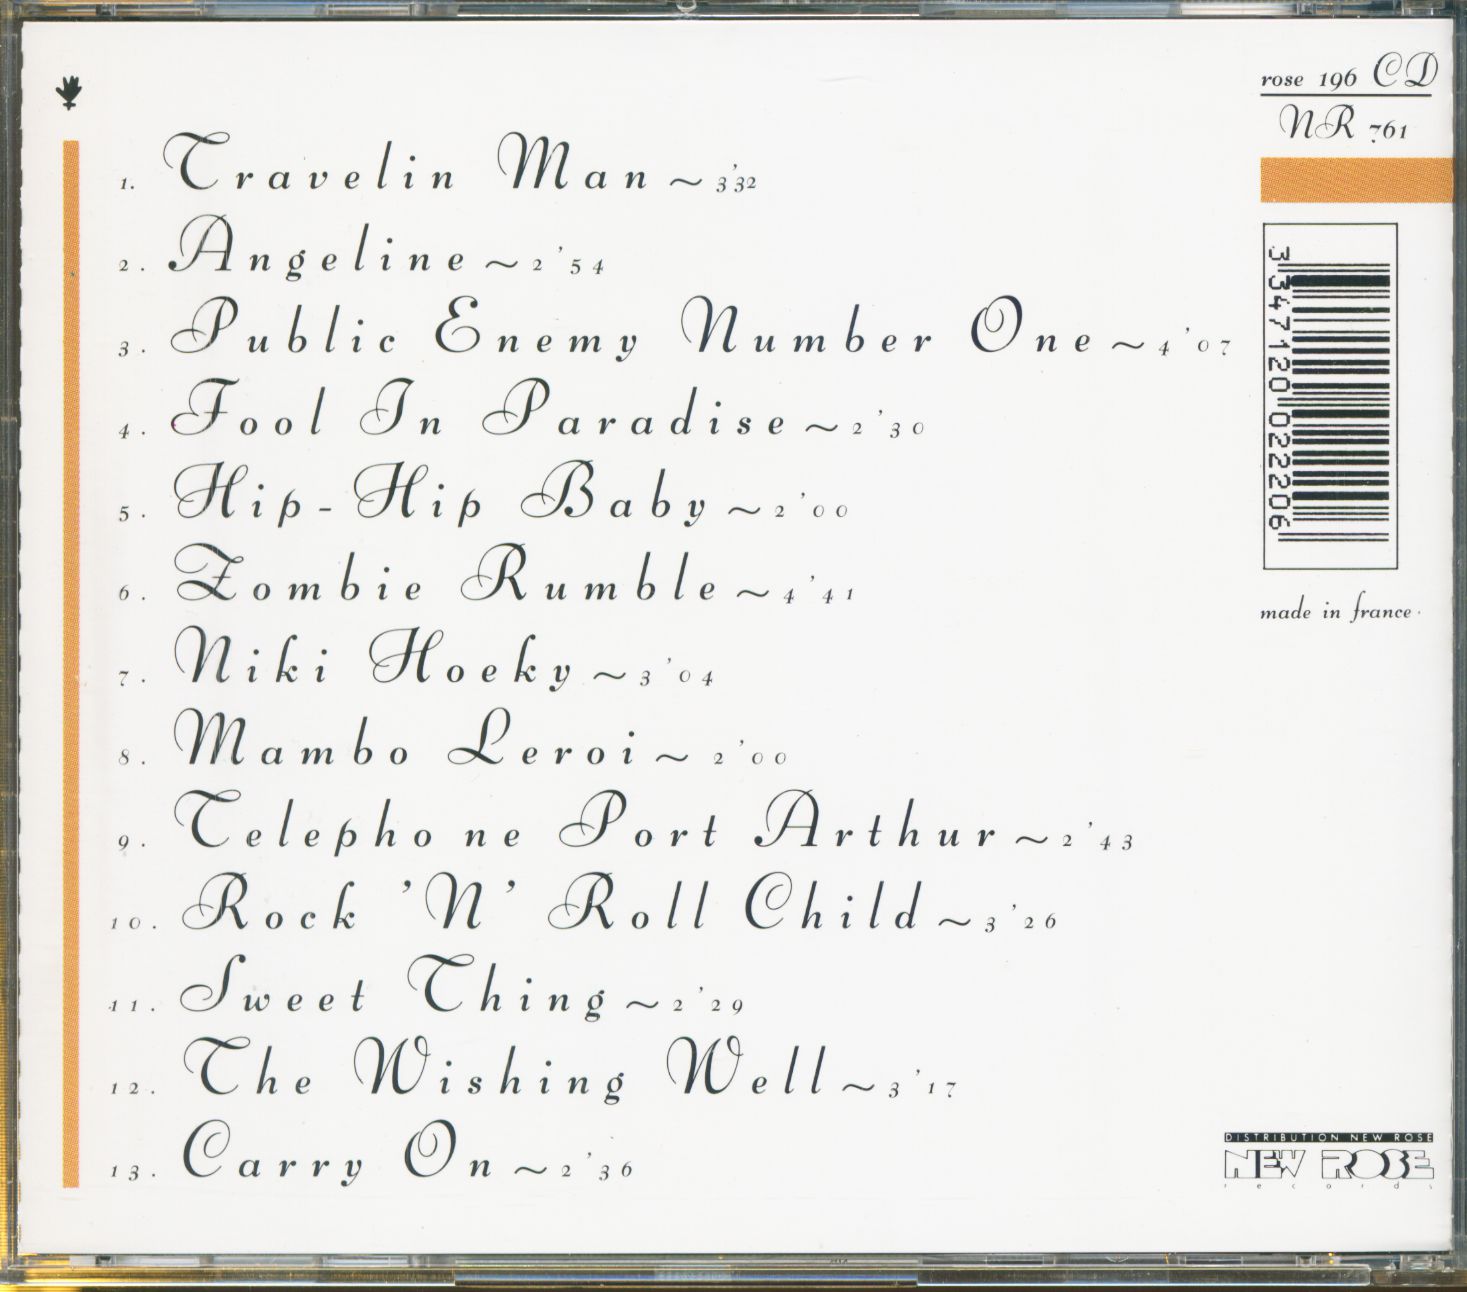 rose 196 CD
NR 761
1. Travelin Man ~ 3'32
2. Angeline ~ 2'54
3. Public Enemy Number One ~ 4'07
4. Fool In Paradise ~ 2'30
5. Hip-Hip Baby ~ 2'00
6. Zombie Rumble ~ 4'41
7. Niki Hoeky ~ 3'04
8. Mambo Leroi ~ 2'00
9. Telephone Port Arthur ~ 2'43
10. Rock 'N' Roll Child ~ 3'26
11. Sweet Thing ~ 2'29
12. The Wishing Well ~ 3'17
13. Carry On ~ 2'36
3 347120 022206
made in france
DISTRIBUTION NEW ROSE
NEW ROSE
records